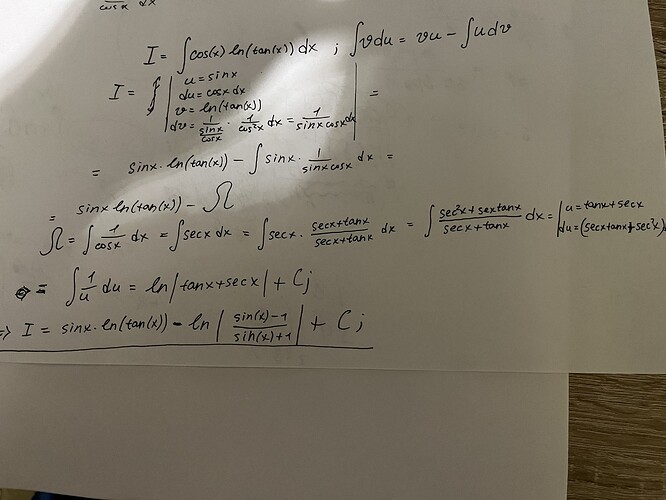 cosx dx
I = ∫cos(x) ln(tan(x)) dx ; ∫vdu = vu - ∫udv
I = ∫ | u = sinx
du = cosx dx
v = ln(tan(x))
dv = 1/(sinx/cosx) · 1/cos²x dx = 1/(sinx cosx) dx | =
= sinx · ln(tan(x)) - ∫ sinx · 1/(sinx cosx) dx =
= sinx ln(tan(x)) - Ω
Ω = ∫ 1/cosx dx = ∫secx dx = ∫secx · (secx+tanx)/(secx+tanx) dx = ∫ (sec²x + sextanx)/(secx+tanx) dx = | u = tanx + secx
du = (secxtanx + sec²x)
= ∫ 1/u du = ln|tanx+secx| + C;
=> I = sinx · ln(tan(x)) - ln | (sin(x)-1)/(sin(x)+1) | + C;